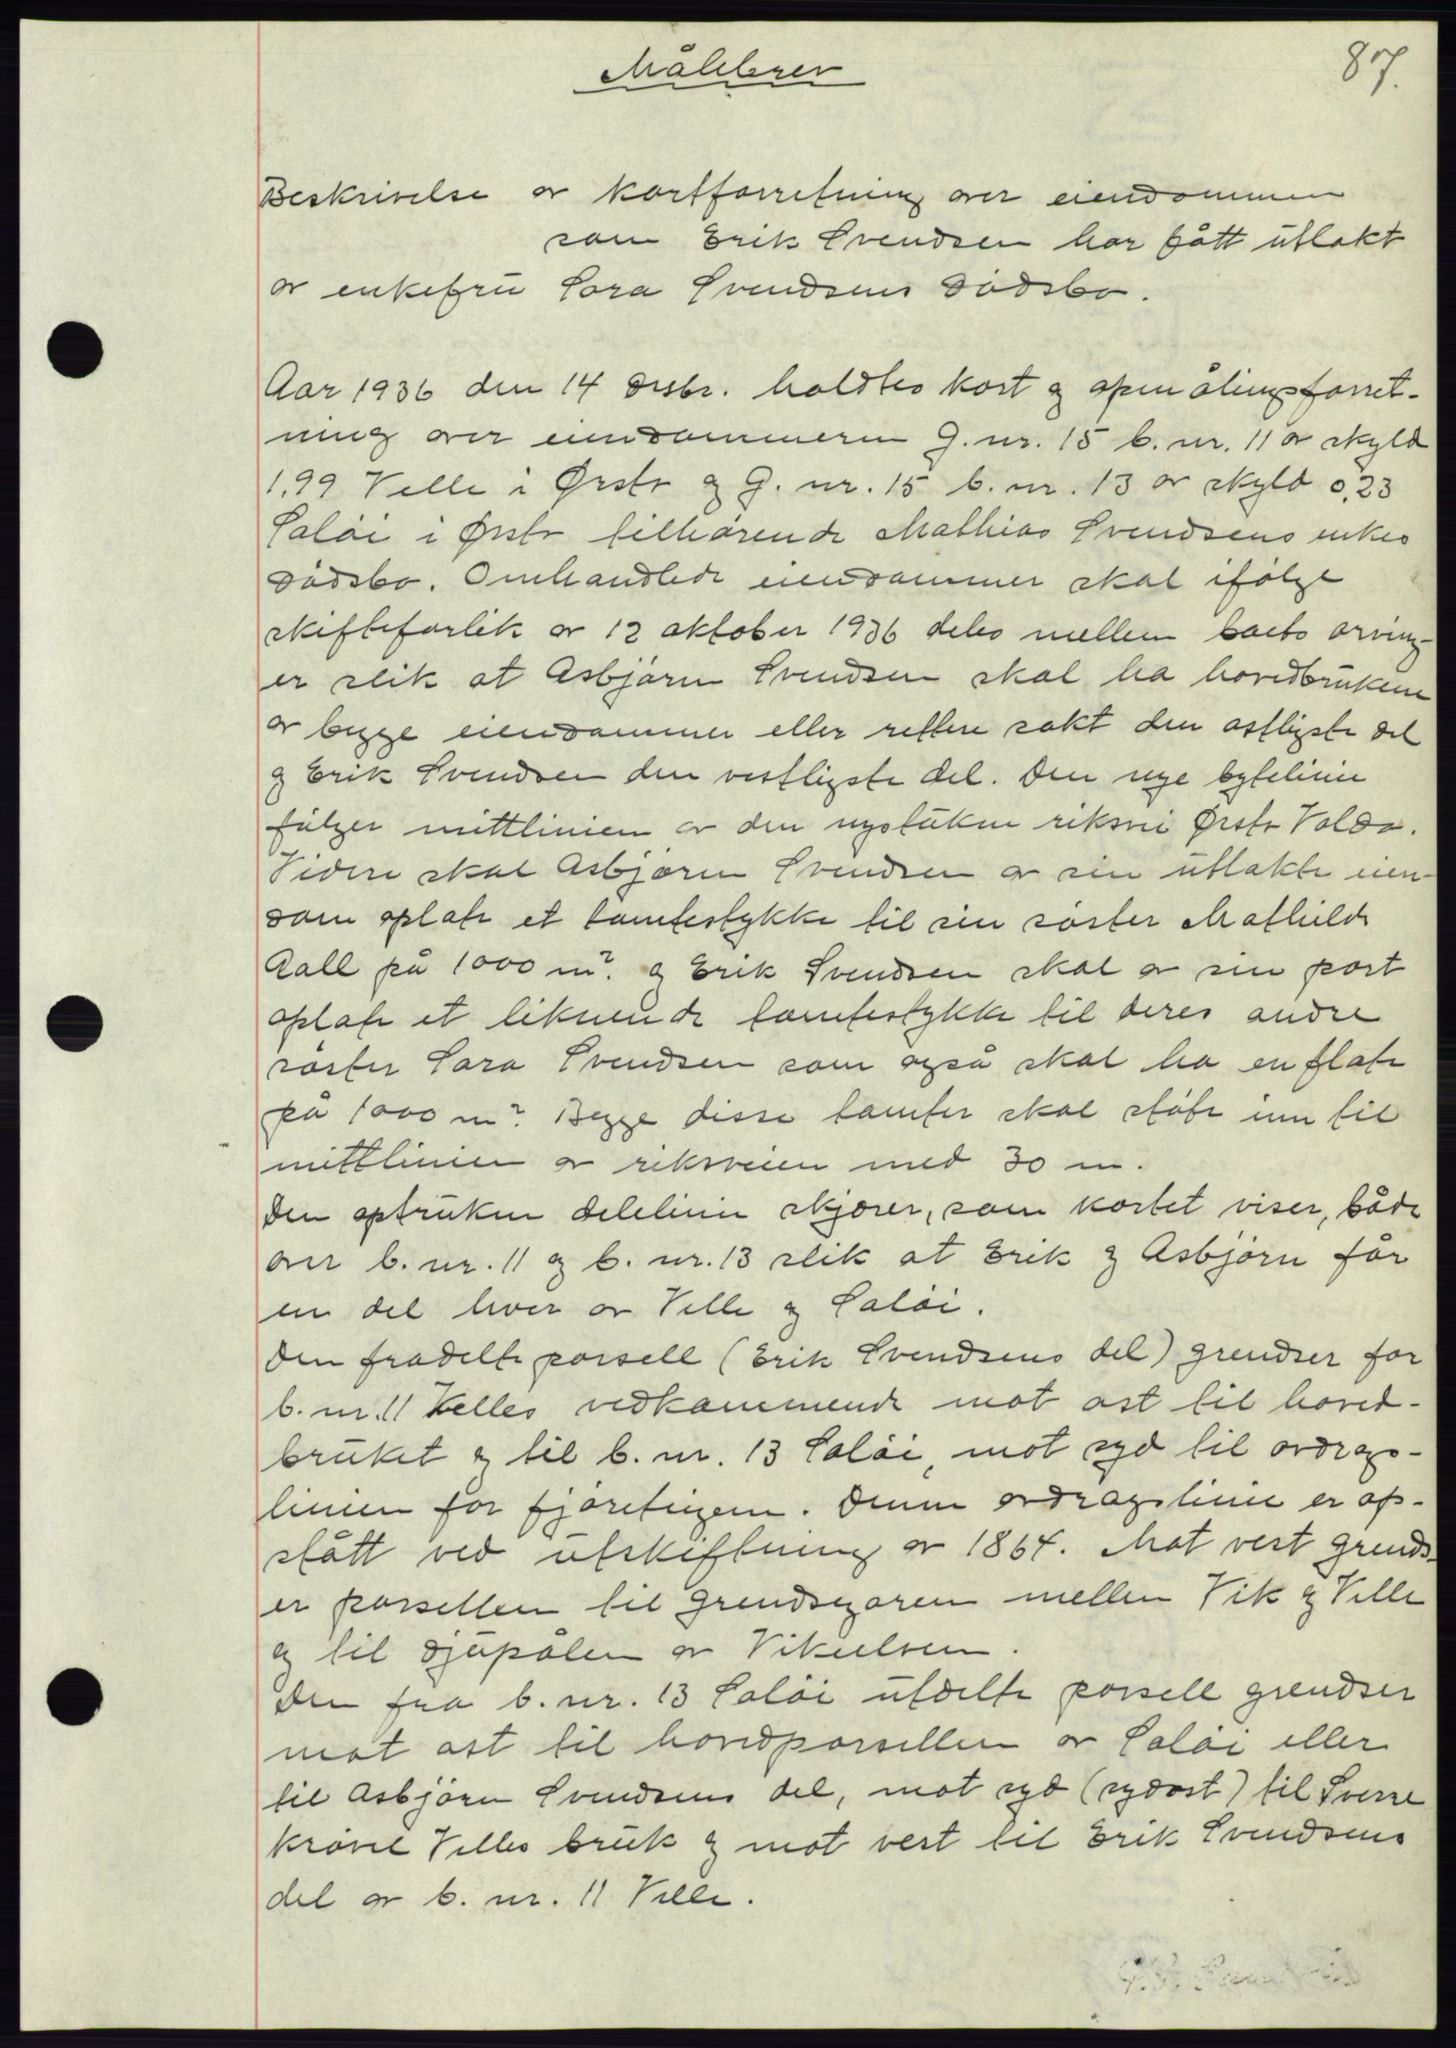 87.
Målebrev
Beskrivelse av kartforretning over eiendommen
som Erik Svendsen har fått utlakt
av enkefru Sara Svendsens dødsbo.
Aar 1936 den 14 desbr. holdtes kart og opmålingsforret-
ning over eiendommeren G. nr. 15 b. nr. 11 av skyld
1,99 Velle i Ørsta og G. nr. 15 b. nr. 13 av skyld 0,23
Saløi i Ørsta tilhørende Mathias Svendsens enkes
dødsbo. Omhandlede eiendommer skal ifølge
skifteforlik av 12 oktober 1936 deles mellem boets arving-
er slik at Asbjørn Svendsen skal ha hovedbrukene
av begge eiendommer eller rettere sakt den østligste del
og Erik Svendsen den vestligste del. Den nye bytelinie
følger mittlinien av den nystukne riksvei Ørsta Volda.
Videre skal Asbjørn Svendsen av sin utlakte eien-
dom oplate et tomtestykke til sin søster Mathilde
Aall på 1000 m². og Erik Svendsen skal av sin part
oplate et liknende tomtestykke til deres andre
søster Sara Svendsen som også skal ha en flate
på 1000 m². Begge disse tomter skal støte inn til
mittlinien av riksveien med 30 m.
Den optrukne delelinie skjærer, som kartet viser, både
over b. nr. 11 og b. nr. 13 slik at Erik og Asbjørn får
en del hver av Velle og Saløi.
Den fradelte parsell (Erik Svendsens del) grendser for
b. nr. 11 Velles vedkommende mot øst til hoved-
bruket og til b. nr. 13 Saløi, mot syd til avdrags-
linien for fjøreteigene. Denne avdragslinie er op-
stått ved utskiftning av 1864. Mot vest grends-
er parsellen til grendsegaren mellem Vik og Velle
og til djupålen av Vikeelven.
Den fra b. nr. 13 Saløi utdelte parsell grendser
mot øst til hovedparsellen av Saløi eller
til Asbjørn Svendsens del, mot syd (sydøst) til Sverre
Krøvel Velles bruk og mot vest til Erik Svendsens
del av b. nr. 11 Velle.